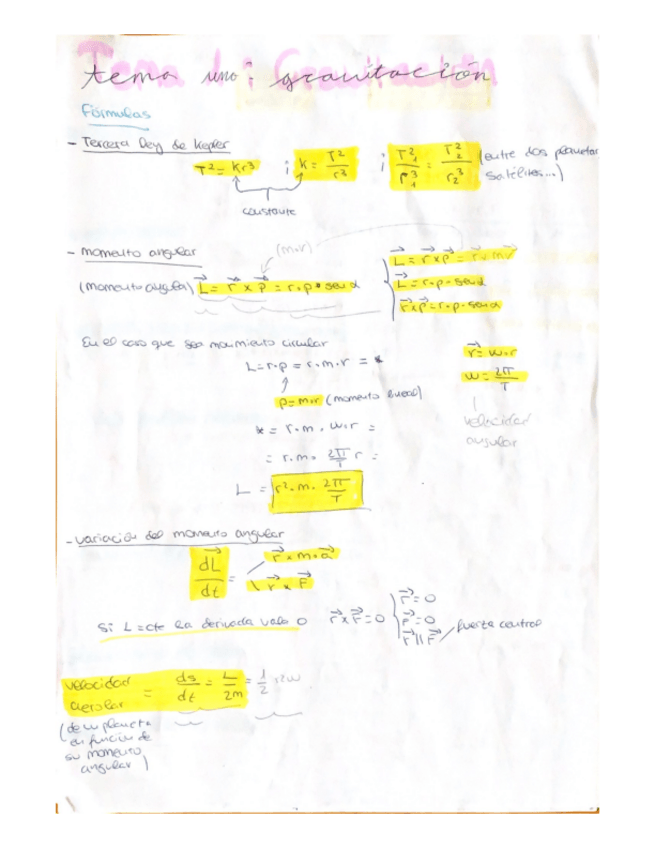 Tema 1: Gravitación
tema uno: gravitación
Fórmulas
- Tercera Ley de Kepler
T² = Kr³ ; k = T²/r³ ; T₁²/r₁³ = T₂²/r₂³ (entre dos planetas satélites...)
constante
- momento angular
(m·v)
(momento angular) L = r x p = r·p·sen α
L = r x p = r x mv
L = r·p·sen α
r x p = r·p·sen α
En el caso que sea movimiento circular
L = r·p = r·m·v = *
p = m·v (momento lineal)
* = r·m·w·r =
= r·m·2π/T r =
L = r²·m·2π/T
v = w·r
w = 2π/T
velocidad
angular
- variación del momento angular
dL/dt = r x m·a
r x F
Si L = cte la derivada vale 0 r x F = 0
r = 0
F = 0
r || F fuerza central
velocidad
aerolar = ds/dt = L/2m = 1/2 r²w
(de un planeta
en función de
su momento
angular)